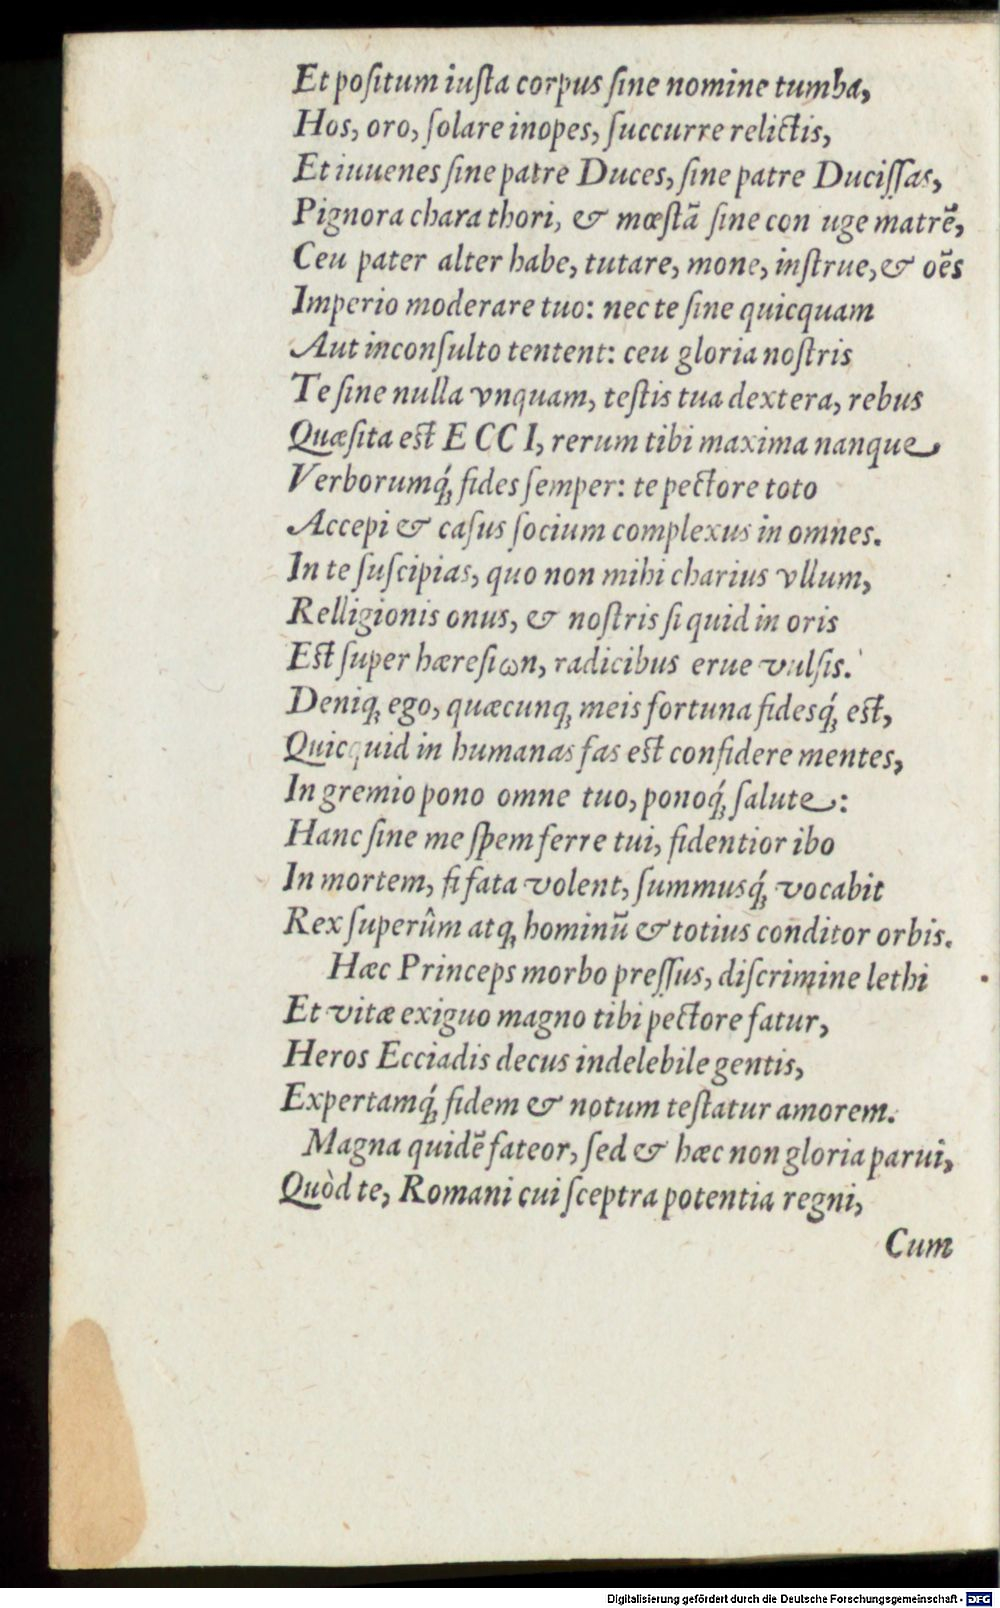 Et poſitum iuſta corpus ſine nomine tumba,
Hos, oro, ſolare inopes, ſuccurre relictis,
Et iuuenes ſine patre Duces, ſine patre Duciſſas,
Pignora chara thori, & mœſtã ſine con uge matrẽ,
Ceu pater alter habe, tutare, mone, inſtrue, & oẽs
Imperio moderare tuo: nec te ſine quicquam
Aut inconſulto tentent: ceu gloria noſtris
Te ſine nulla vnquam, teſtis tua dextera, rebus
Quæſita eſt E CC I, rerum tibi maxima nanque
Verborumq́; fides ſemper: te pectore toto
Accepi & caſus ſocium complexus in omnes.
In te ſuſcipias, quo non mihi charius vllum,
Relligionis onus, & noſtris ſi quid in oris
Eſt ſuper hæreſiωn, radicibus erue vulſis.
Deniq; ego, quæcunq; meis fortuna fidesq́; eſt,
Quicquid in humanas fas eſt confidere mentes,
In gremio pono omne tuo, ponoq́; ſalute:
Hanc ſine me ſpem ferre tui, fidentior ibo
In mortem, ſi fata volent, ſummusq́; vocabit
Rex ſuperûm atq; hominũ & totius conditor orbis.
Hæc Princeps morbo preſſus, diſcrimine lethi
Et vitæ exiguo magno tibi pectore fatur,
Heros Ecciadis decus indelebile gentis,
Expertamq́; fidem & notum teſtatur amorem.
Magna quidẽ fateor, ſed & hæc non gloria parui,
Quòd te, Romani cui ſceptra potentia regni,
Cum
Digitalisierung gefördert durch die Deutsche Forschungsgemeinschaft - DFG